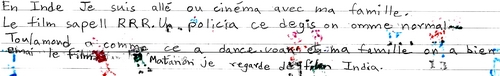 En Inde Je suis allé ou cinéma avec ma famille.
Le film sapell RRR. Un policia ce degis on omme normal
Toulamond a comme ce a dance. voan et ma famille on a bien
emai le film Matanan je regarde des film India.